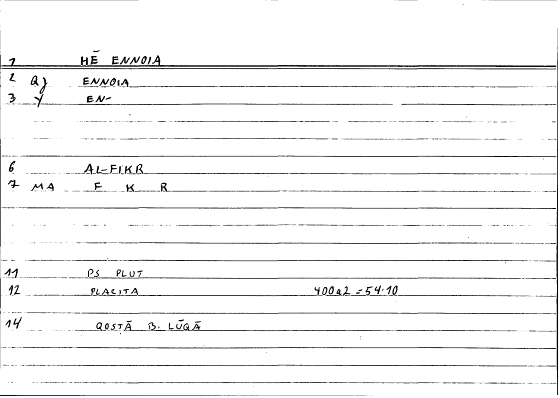 1 HĒ ENNOIA
2 Q) ENNOIA
3 Y EN-
6 AL-FIKR
7 MA F K R
11 PS PLUT
12 PLACITA 400a2 = 54.10
14 QOSTĀ B. LŪQĀ